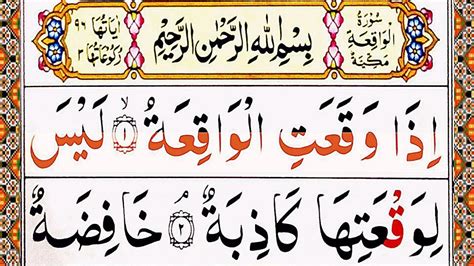 سُورَةُ الْوَاقِعَةِ مَكِّيَّةٌ
بِسْمِ اللّٰهِ الرَّحْمٰنِ الرَّحِيْمِ
اٰيَاتُهَا ٩٦ رُكُوْعَاتُهَا ٣
اِذَا وَقَعَتِ الْوَاقِعَةُ ۙ‏ ﴿۱﴾ لَيْسَ
لِوَقْعَتِهَا كَاذِبَةٌ ۘ‏ ﴿۲﴾ خَافِضَةٌ